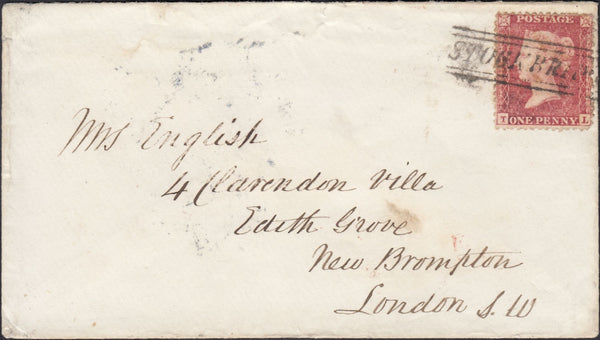 POSTAGE
STOCKBRIDGE
T ONE PENNY L
Mrs English
4 Clarendon Villa
Edith Grove
New Brompton
London S.W